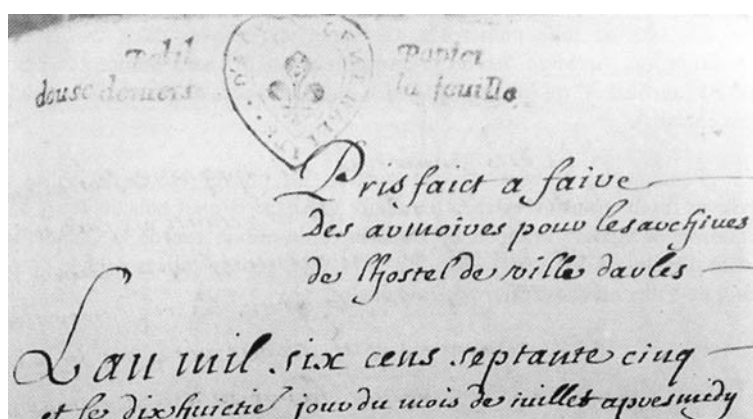 Petit Papier
douse deniers la feuille
Prisfaict a faire
des armoires pour les archives
de lhostel de ville darles
Lan mil six cens septante cinq
et le dixhuictie jour du mois de iuillet apres midy